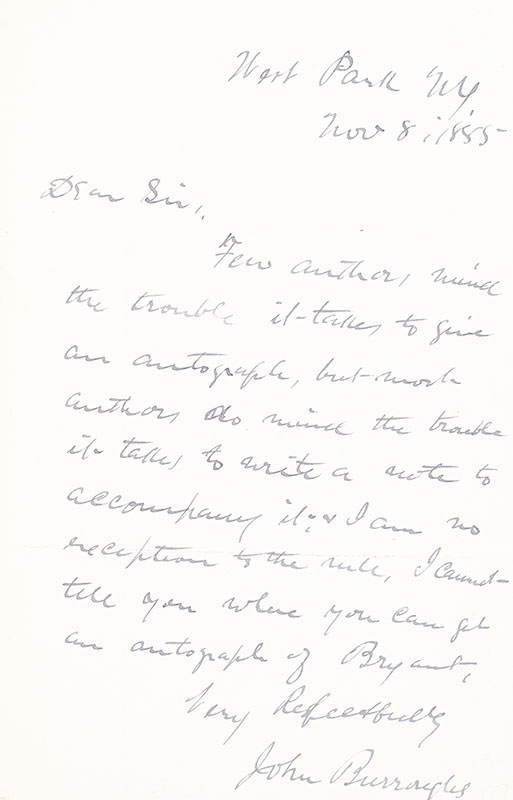 West Park NY
Nov 8, 1885
Dear Sir,
Few authors mind
the trouble it takes to give
an autograph, but most
authors do mind the trouble
it takes to write a note to
accompany it; & I am no
exception to the rule, I cannot
tell you where you can get
an autograph of Bryant,
Very Respectfully
John Burroughs